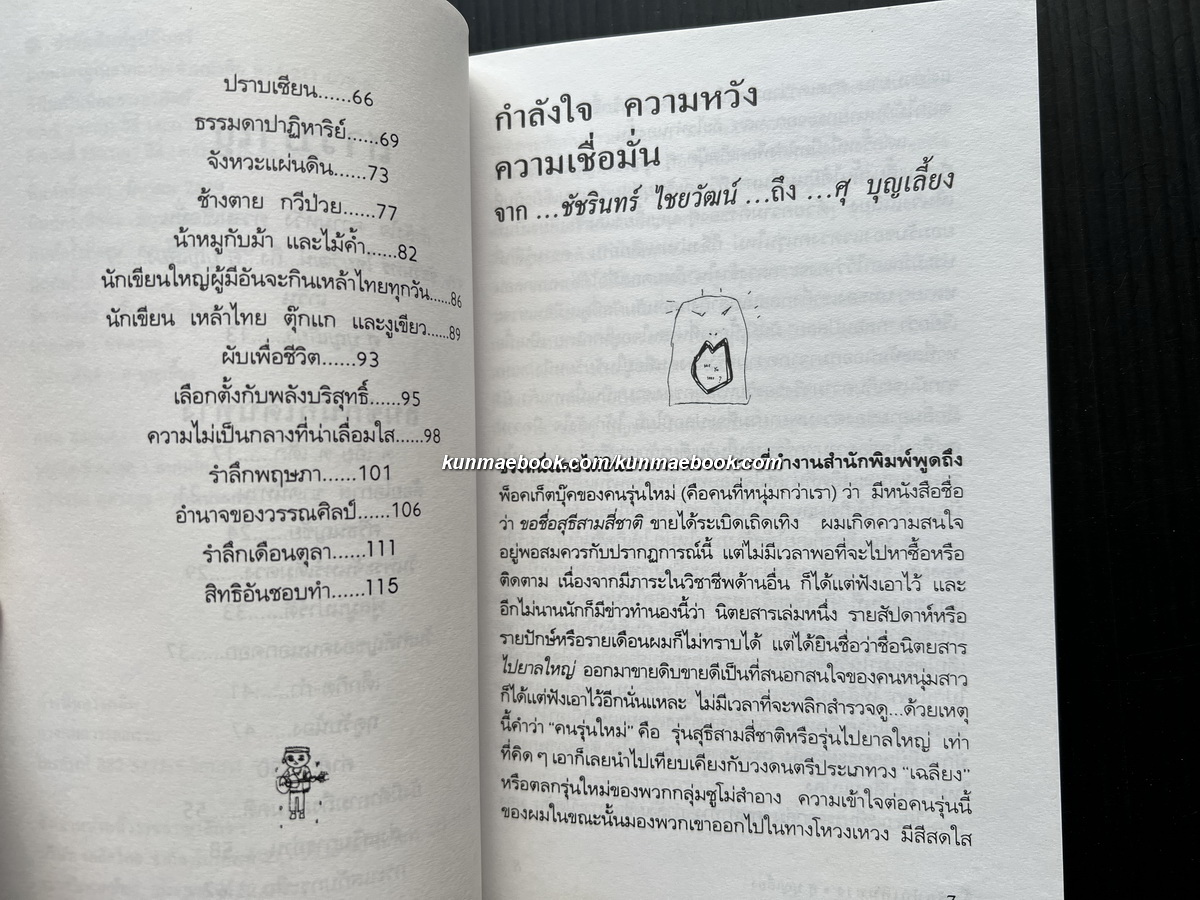 ปราบเซียน......66
ธรรมดาปาฏิหาริย์......69
จังหวะแผ่นดิน......73
ช้างตาย กวีป่วย......77
น้าหมูกับม้า และไม้ค้ำ......82
นักเขียนใหญ่ผู้มีอันจะกินเหล้าไทยทุกวัน......86
นักเขียน เหล้าไทย ตุ๊กแก และงูเขียว......89
ผับเพื่อชีวิต......93
เลือกตั้งกับพลังบริสุทธิ์......95
ความไม่เป็นกลางที่น่าเลื่อมใส......98
รำลึกพฤษภา......101
อำนาจของวรรณศิลป์......106
รำลึกเดือนตุลา......111
สิทธิอันชอบทำ......115
กำลังใจ ความหวัง
ความเชื่อมั่น
จาก ...ชัชรินทร์ ไชยวัฒน์ ...ถึง ...ศุ บุญเลี้ยง
kunmaebook.com/kunmaebook.com
ที่ทำงานสำนักพิมพ์พูดถึง
พ็อคเก็ตบุ๊คของคนรุ่นใหม่ (คือคนที่หนุ่มกว่าเรา) ว่า มีหนังสือชื่อ
ว่า ขอชื่อสุธีสามสี่ชาติ ขายได้ระเบิดเถิดเทิง ผมเกิดความสนใจ
อยู่พอสมควรกับปรากฏการณ์นี้ แต่ไม่มีเวลาพอที่จะไปหาซื้อหรือ
ติดตาม เนื่องจากมีภาระในวิชาชีพด้านอื่น ก็ได้แต่ฟังเอาไว้ และ
อีกไม่นานนักก็มีข่าวทำนองนี้ว่า นิตยสารเล่มหนึ่ง รายสัปดาห์หรือ
รายปักษ์หรือรายเดือนผมก็ไม่ทราบได้ แต่ได้ยินชื่อว่าชื่อนิตยสาร
ไปยาลใหญ่ ออกมาขายดิบขายดีเป็นที่สนอกสนใจของคนหนุ่มสาว
ก็ได้แต่ฟังเอาไว้อีกนั่นแหละ ไม่มีเวลาที่จะพลิกสำรวจดู...ด้วยเหตุ
นี้คำว่า "คนรุ่นใหม่" คือ รุ่นสุธีสามสี่ชาติหรือรุ่นไปยาลใหญ่ เท่า
ที่คิด ๆ เอาก็เลยนำไปเทียบเคียงกับวงดนตรีประเภทวง "เฉลียง"
หรือตลกรุ่นใหม่ของพวกกลุ่มซูโม่สำอาง ความเข้าใจต่อคนรุ่นนี้
ของผมในขณะนั้นมองพวกเขาออกไปในทางโหวงเหวง มีสีสดใส